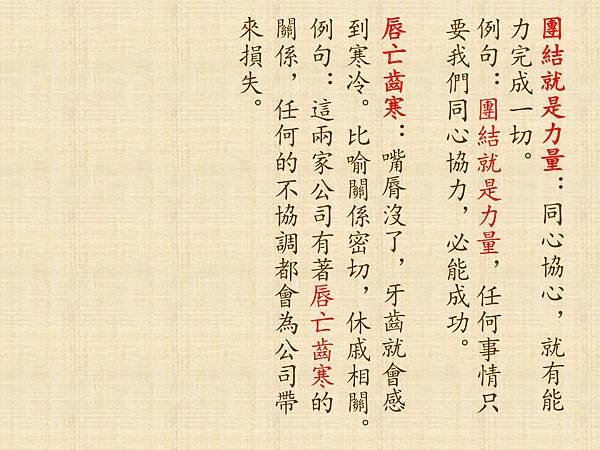 團結就是力量：同心協心，就有能
力完成一切。
例句：團結就是力量，任何事情只
要我們同心協力，必能成功。
唇亡齒寒：嘴脣沒了，牙齒就會感
到寒冷。比喻關係密切，休戚相關。
例句：這兩家公司有著唇亡齒寒的
關係，任何的不協調都會為公司帶
來損失。